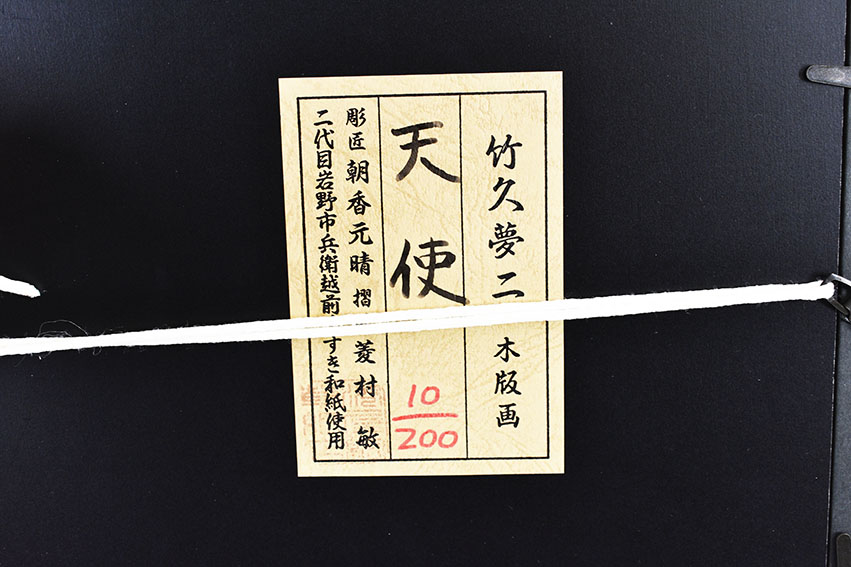 竹久夢二 木版画
天使
10/200
彫匠 朝香元晴 摺 菱村 敏
二代目岩野市兵衛越前 すき和紙使用